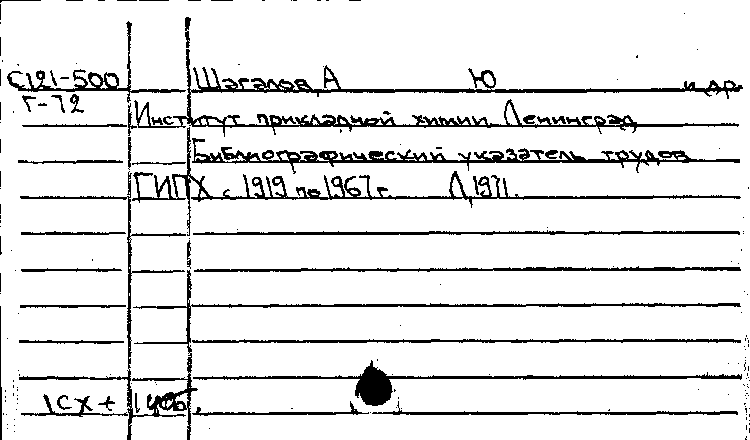 С121-500 Шагалов, А Ю и др.
Г-72
Институт прикладной химии. Ленинград
Библиографический указатель трудов
ГИПХ с 1919 по 1967 г. Л, 1971.
1СХ +